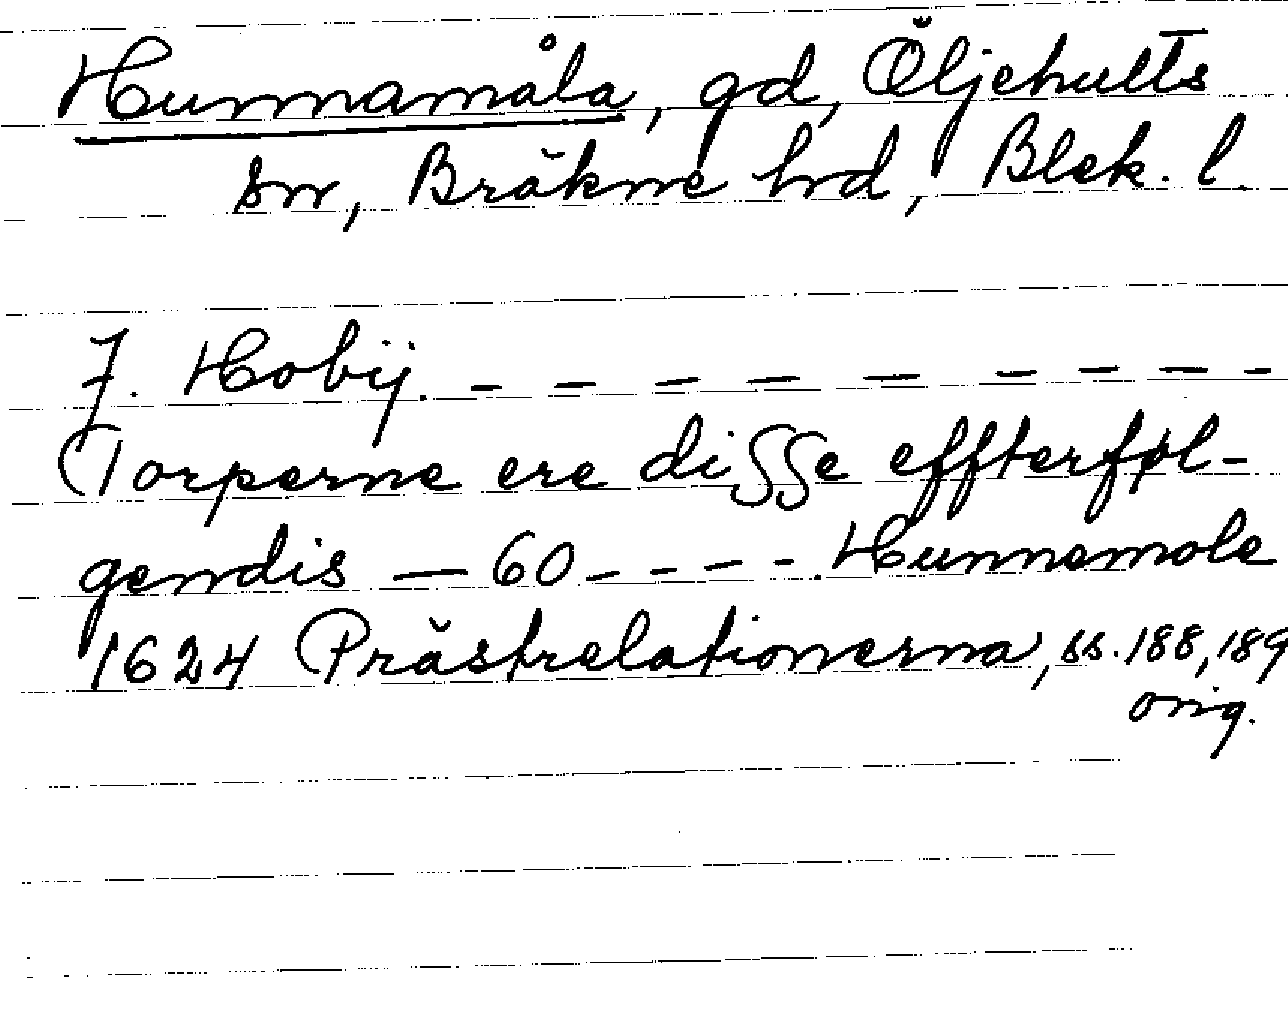 Hunnamåla, gd, Öljehults
sn, Bräkne hrd, Blek. l.
J. Hobÿ. – – – – – – – – –
Torperne ere disse effterføl-
gendis – 60 – – – – . Hunnemole
1624 Prästrelationerna, ss. 188, 189
orig.